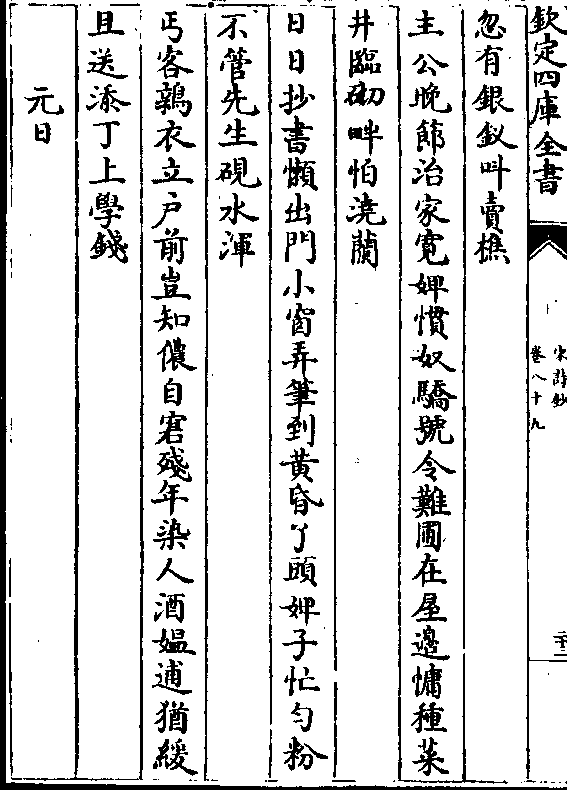 欽定四庫全書
宋詩鈔
卷八十九
二十三
忽有銀釵叫賣樵
主公晚節治家寛婢慣奴驕號令難圃在屋邊慵種菜
井臨砌畔怕澆蘭
日日抄書懶出門小窗弄筆到黄昏丫頭婢子忙匀粉
不管先生硯水渾
丐客鶉衣立户前豈知儂自窘殘年染人酒媪逋猶緩
且送添丁上學錢
元日